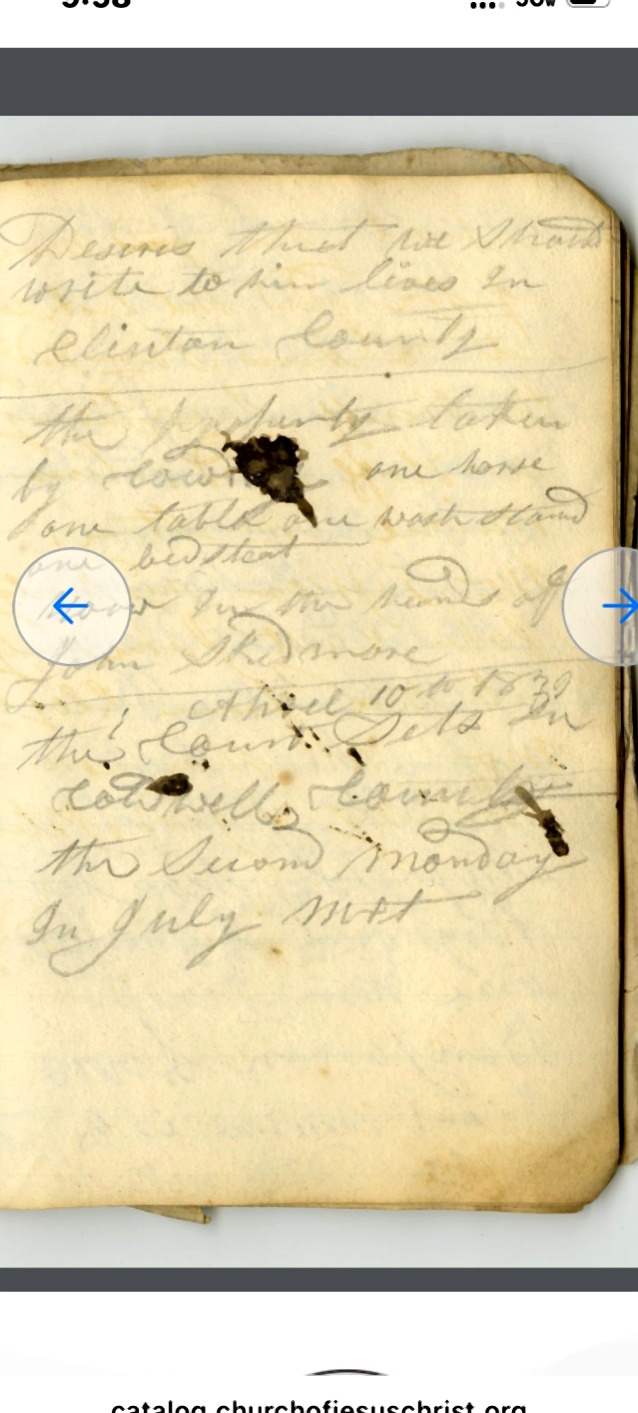 9:38
Desires that we should
write to him lives In
Clinton County
the property taken
by one horse
one table one wash stand
one bedsteat
now In the hands of
John Skidmore
April 10th 1839
the Court Sets In
Coldwell County
the Second Monday
In July next
catalog.churchofjesuschrist.org